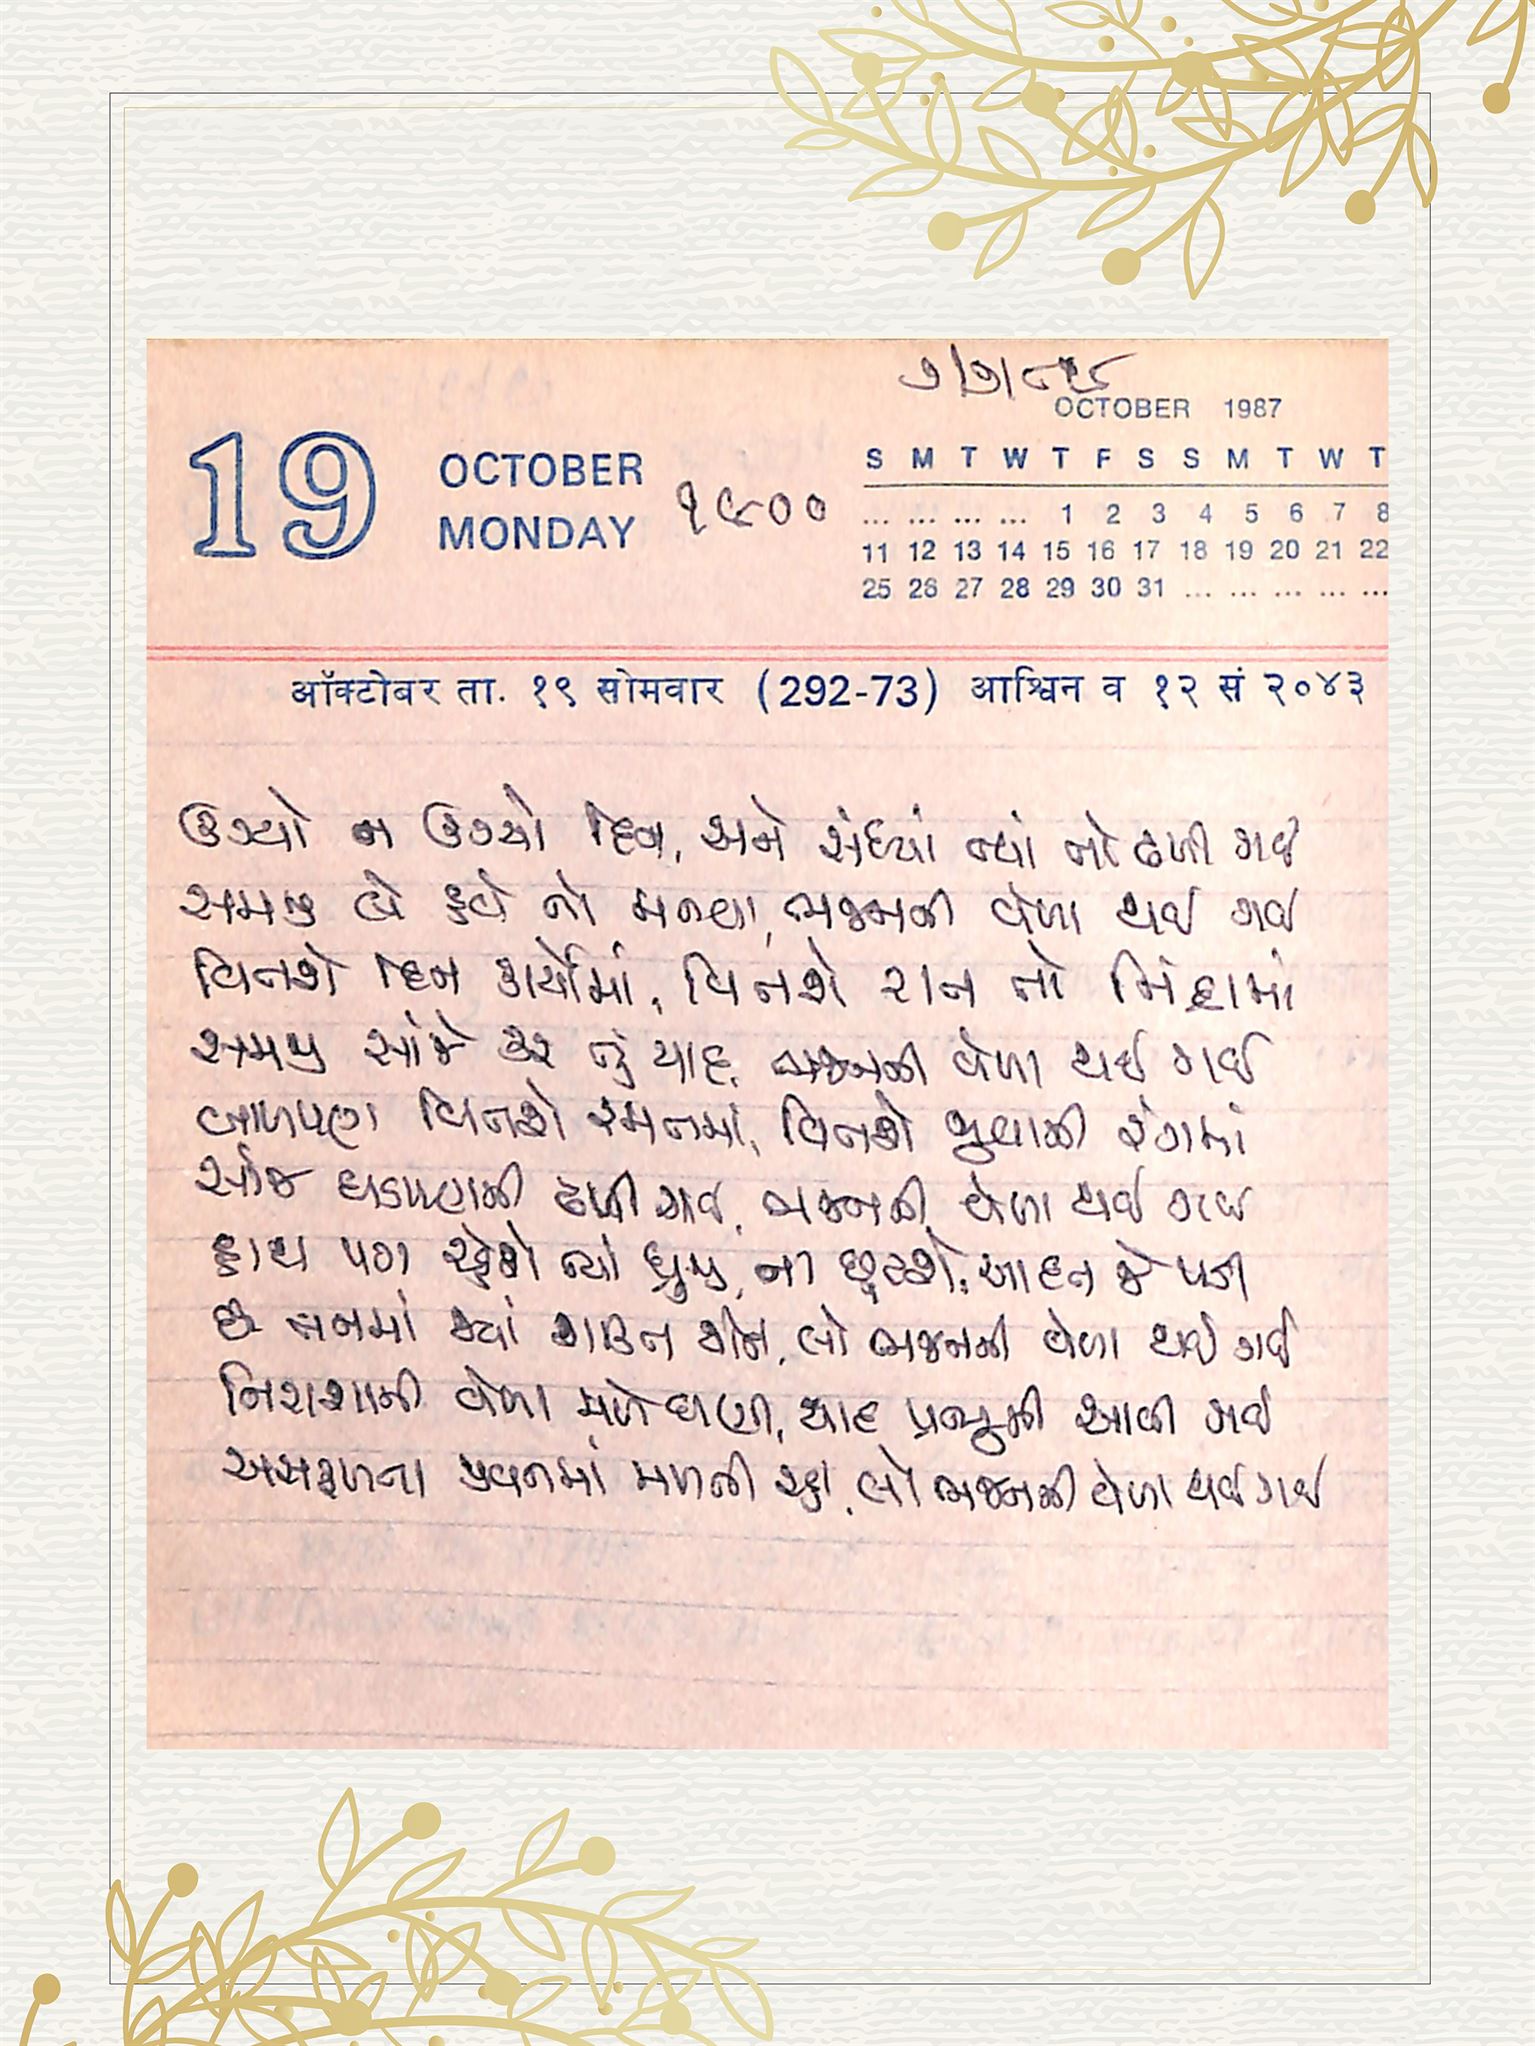 ૭/૭/૮૯
OCTOBER 1987
19 OCTOBER
MONDAY
૧૯૦૦
S M T W T F S S M T W T
... ... ... ... 1 2 3 4 5 6 7 8
11 12 13 14 15 16 17 18 19 20 21 22
25 26 27 28 29 30 31 ... ... ... ... ...
ऑक्टोबर ता. १९ सोमवार (292-73) आश्विन व १२ सं २०४३
ઉગ્યો ન ઉગ્યો દિન, અને સંધ્યા ત્યાં તો ઢળી ગઈ
સમજી લે હવે તો મનવા, ભજનની વેળા થઈ ગઈ
વિતશે દિન કાર્યોમાં, વિતશે રાત તો નિંદ્રામાં
સમય સાંજે કર તું યાદ, ભજનની વેળા થઈ ગઈ
બાળપણ વિતશે રમતમાં, વિતશે જુવાની રંગમાં
સાંજ ઘડપણની ઢળી ગઈ, ભજનની વેળા થઈ ગઈ
હાથ પગ રહેશે ત્યાં ધ્રુજી, ના છૂટશે, આદત જે પડી
છે તનમાં જ્યાં શક્તિ, લો ભજનની વેળા થઈ ગઈ
નિરાશાની વેળા મળે ઘણી, યાદ પ્રભુની આવી ગઈ
અસફળતા જીવનમાં મળતી રહી, લો ભજનની વેળા થઈ ગઈ